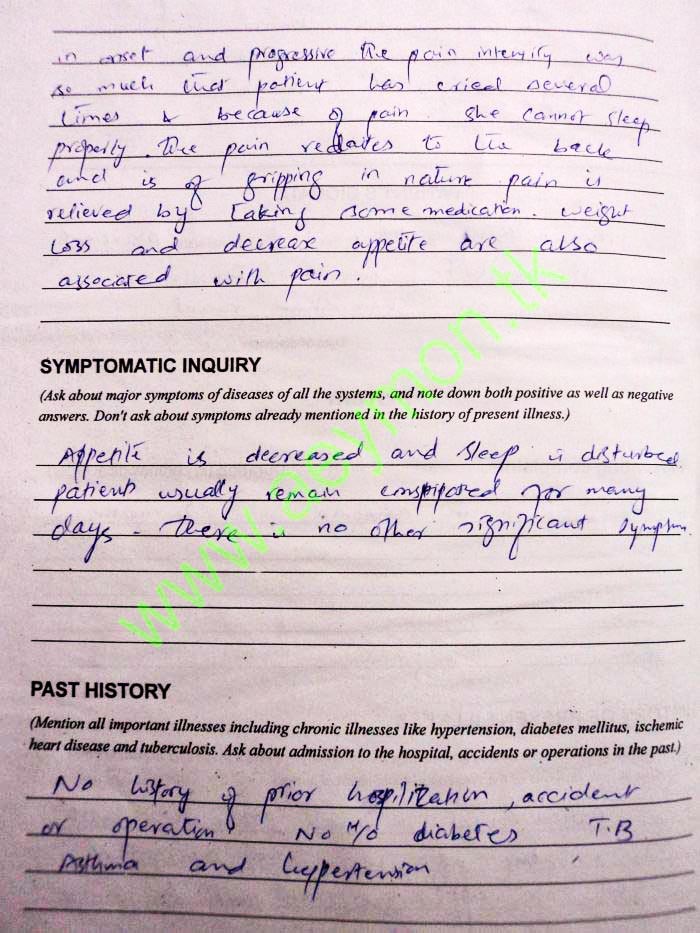 in onset and progressive the pain intensity was
so much that patient has cried several
times & because of pain. She cannot sleep
properly. The pain rediates to the back
and is of gripping in nature pain is
relieved by taking some medication. weight
loss and decrease appetite are also
associated with pain.
SYMPTOMATIC INQUIRY
(Ask about major symptoms of diseases of all the systems, and note down both positive as well as negative
answers. Don't ask about symptoms already mentioned in the history of present illness.)
Appetite is decreased and sleep is disturbed
patients usually remain constipated for many
days - There is no other significant symptom.
www.aeymon.tk
PAST HISTORY
(Mention all important illnesses including chronic illnesses like hypertension, diabetes mellitus, ischemic
heart disease and tuberculosis. Ask about admission to the hospital, accidents or operations in the past.)
No history of prior hospilization, accident
or operation No H/o diabetes T.B
Asthma and hyppertension